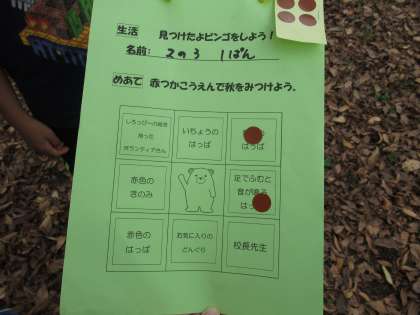 生活 見つけたよビンゴをしよう！
名前： 2の3 1ぱん
めあて 赤つかこうえんで秋をみつけよう。
しろっぴーの絵を
ボランティアさん
いちょうの
はっぱ
はっぱ
赤色の
きのみ
足でふむと
音が鳴る
はっ
赤色の
はっぱ
お気に入りの
どんぐり
校長先生